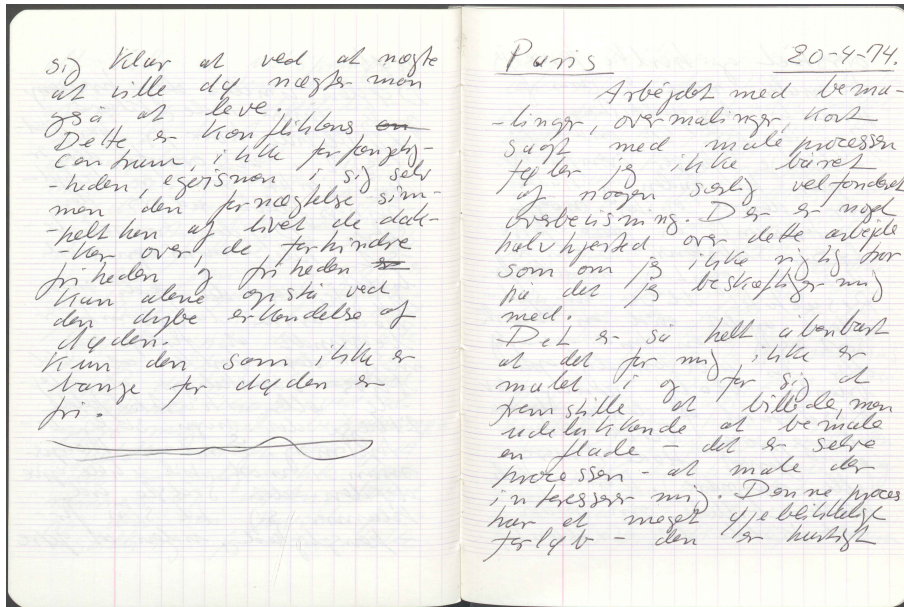 sig klar at ved at nægte
at ville dø nægter man
også at leve.
Dette er konfliktens, en
centrum, ikke forfængelig-
-heden, egoismen i sig selv
men den fornægtelse sim-
-pelthen af livet de dæk-
-ker over, de forhindre
friheden og friheden
kan alene opstå ved
den dybe erkendelse af
døden.
Kun den som ikke er
bange for døden er
fri.
Paris 20-4-74.
Arbejdet med bema-
-linger, overmalinger, kort
sagt med male processen
føler jeg ikke båret
af nogen særlig velfonderet
overbevisning. Der er noget
halvhjertet over dette arbejde
som om jeg ikke rigtig tror
på det jeg beskæftiger mig
med.
Det er så helt åbenbart
at det for mig ikke er
målet i og for sig at
fremstille et billede, men
udelukkende at bemale
en flade – det er selve
processen – at male der
interesserer mig. Denne proces
har et meget øjeblikkeligt
forløb – den er hurtigt